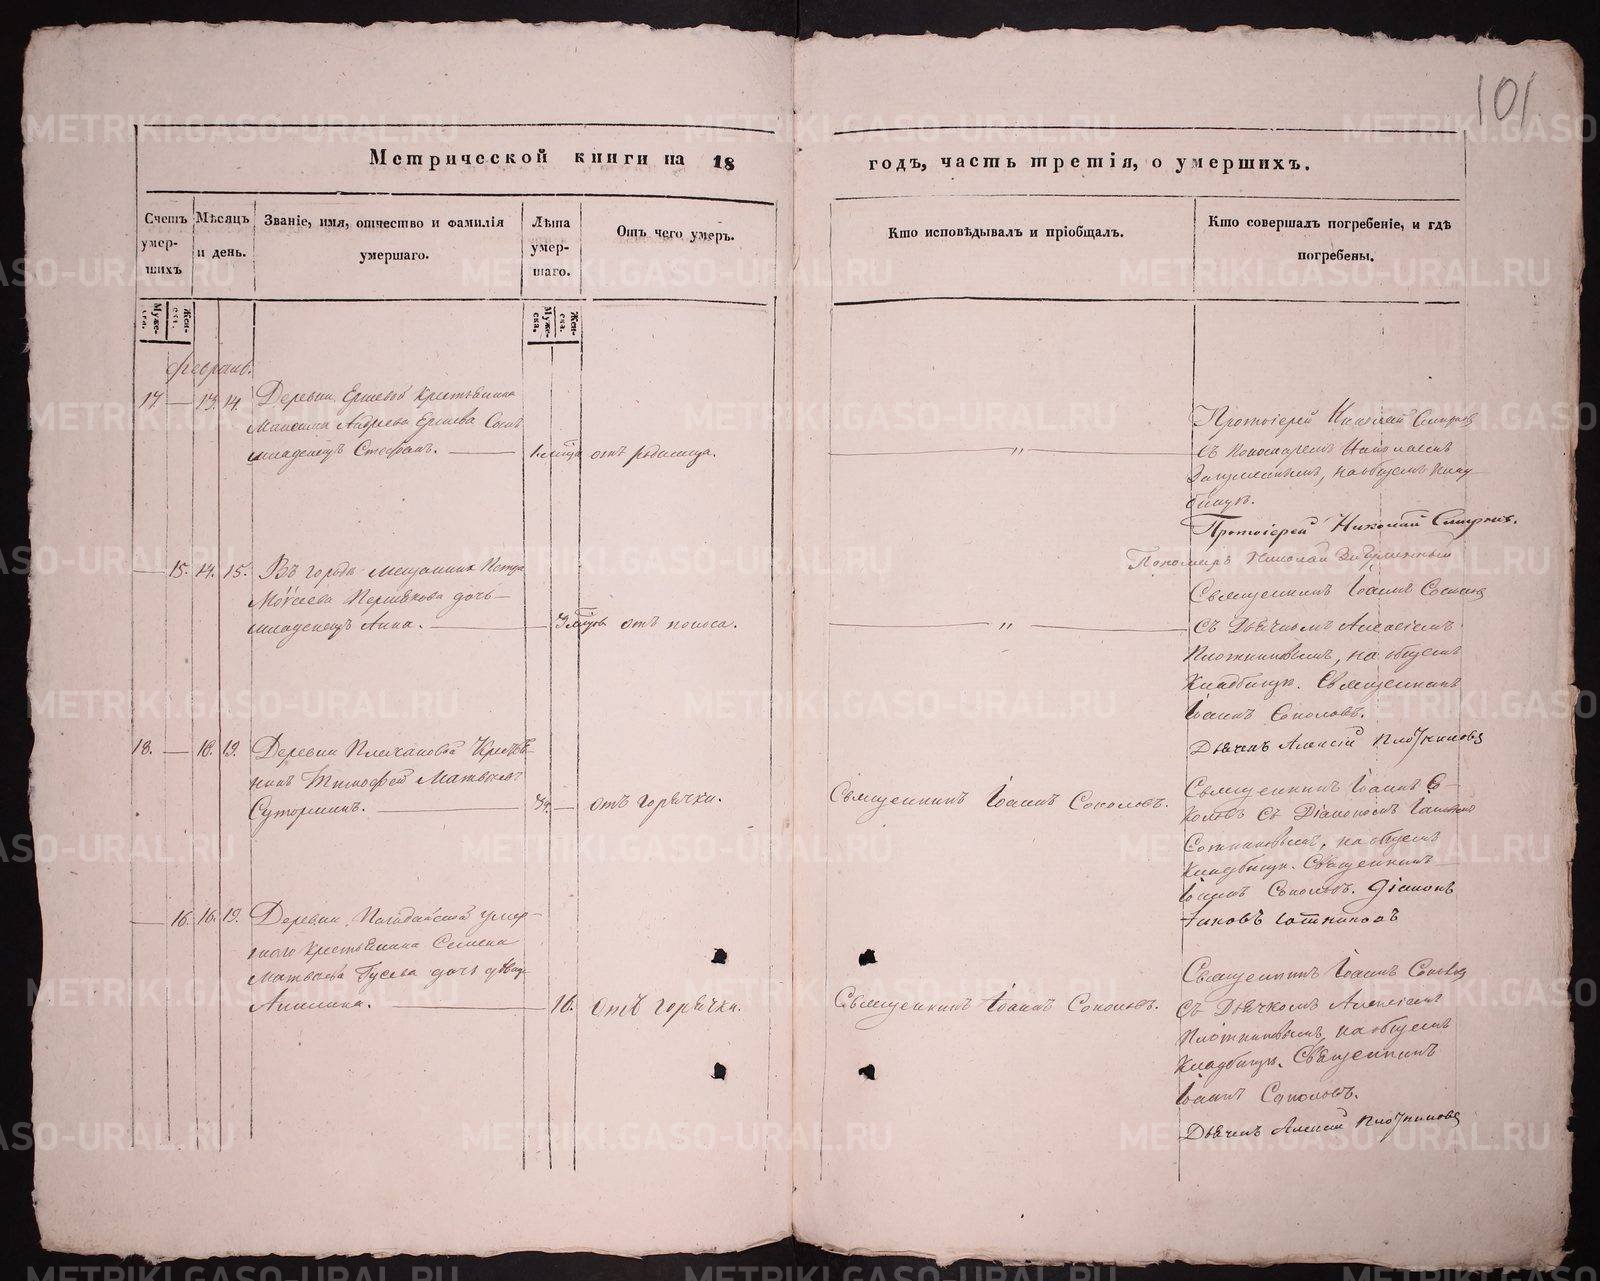 101
Метрической книги на 18 годъ, часть третія, о умершихъ.
Счетъ умер-шихъ
Мѣсяцъ и день.
Званіе, имя, отчество и фамилія умершаго.
Лѣта умер-шаго.
Отъ чего умеръ.
Кто исповѣдывалъ и пріобщалъ.
Кто совершалъ погребеніе, и гдѣ погребены.
Муже-ска.
Жен-ска.
Муже-ска.
Жен-ска.
Февраль.
17. — 13. 14. Деревни Ершевой крестьянина
Максима Андреева Ершева сынъ
младенецъ Стефанъ.
отъ родимца.
Протоіерей Николай Смирновъ
съ пономаремъ Николаемъ
на общемъ клад-
бищѣ.
Протоіерей Николай Смирновъ.
Пономарь Николай
— 15. 14. 15. Въ городѣ мещанина Петра
Моѵсеева дочь
младенецъ Анна.
отъ поноса.
Священникъ Іоаннъ Соколовъ
съ Дьячкомъ Алексіемъ
Плотниковымъ, на общемъ
кладбищѣ. Священникъ
Іоаннъ Соколовъ.
Дьячекъ Алексій Плотниковъ
18. — 16. 19. Деревни Плехановой кресть-
нинъ Тимофей Матвѣевъ
Суторминъ.
отъ горячки.
Священникъ Іоаннъ Соколовъ.
Священникъ Іоаннъ Со-
коловъ съ Діакономъ Іаковомъ
Сотниковымъ, на общемъ
кладбищѣ. Священникъ
Іоаннъ Соколовъ. Діаконъ
Іаковъ Сотниковъ
— 16. 16. 19. Деревни умер-
шаго крестьянина Семена
Матвѣева Гусева дочь дѣвица
Акилина.
16. отъ горячки.
Священникъ Іоаннъ Соколовъ.
Священникъ Іоаннъ Соколовъ
съ Дьячкомъ Алексіемъ
Плотниковымъ, на общемъ
кладбищѣ. Священникъ
Іоаннъ Соколовъ.
Дьячекъ Алексій Плотниковъ
METRIKI.GASO-URAL.RU